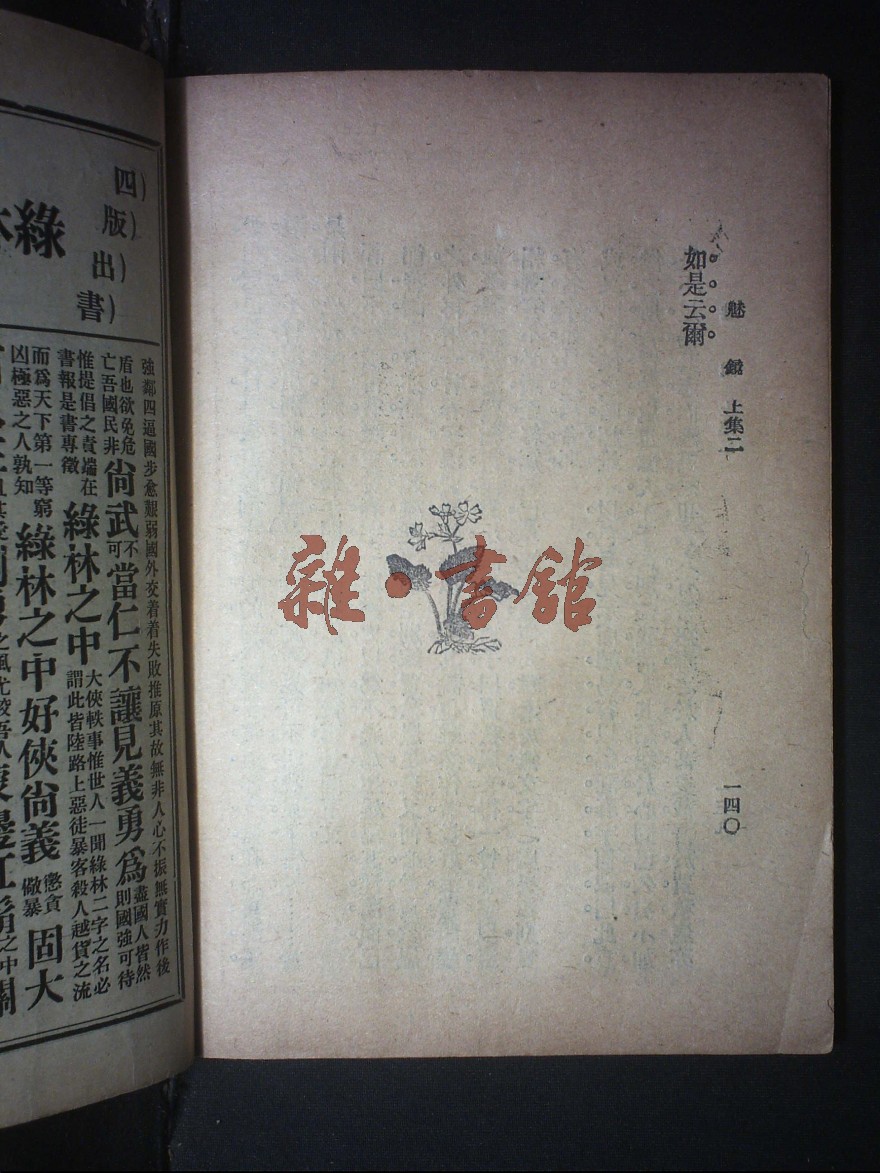 魅鏡 上集二
一四〇
如是云爾
雜·書館
四版出書
綠
強鄰四逼國步愈艱弱國外交着着失敗推原其故無非人心不振無實力作後
盾也欲免危
亡吾國民非
尙武
不
可
當仁不讓見義勇爲
盡國人皆然
則國強可待
惟提倡之責端在
書報是書專徵
綠林之中
大俠軼事惟世人一聞綠林二字之名必
謂此皆陸路上惡徒暴客殺人越貨之流
而爲天下第一等窮
凶極惡之人孰知
綠林之中好俠尙義
懲貪
儆暴
固大
之中
關